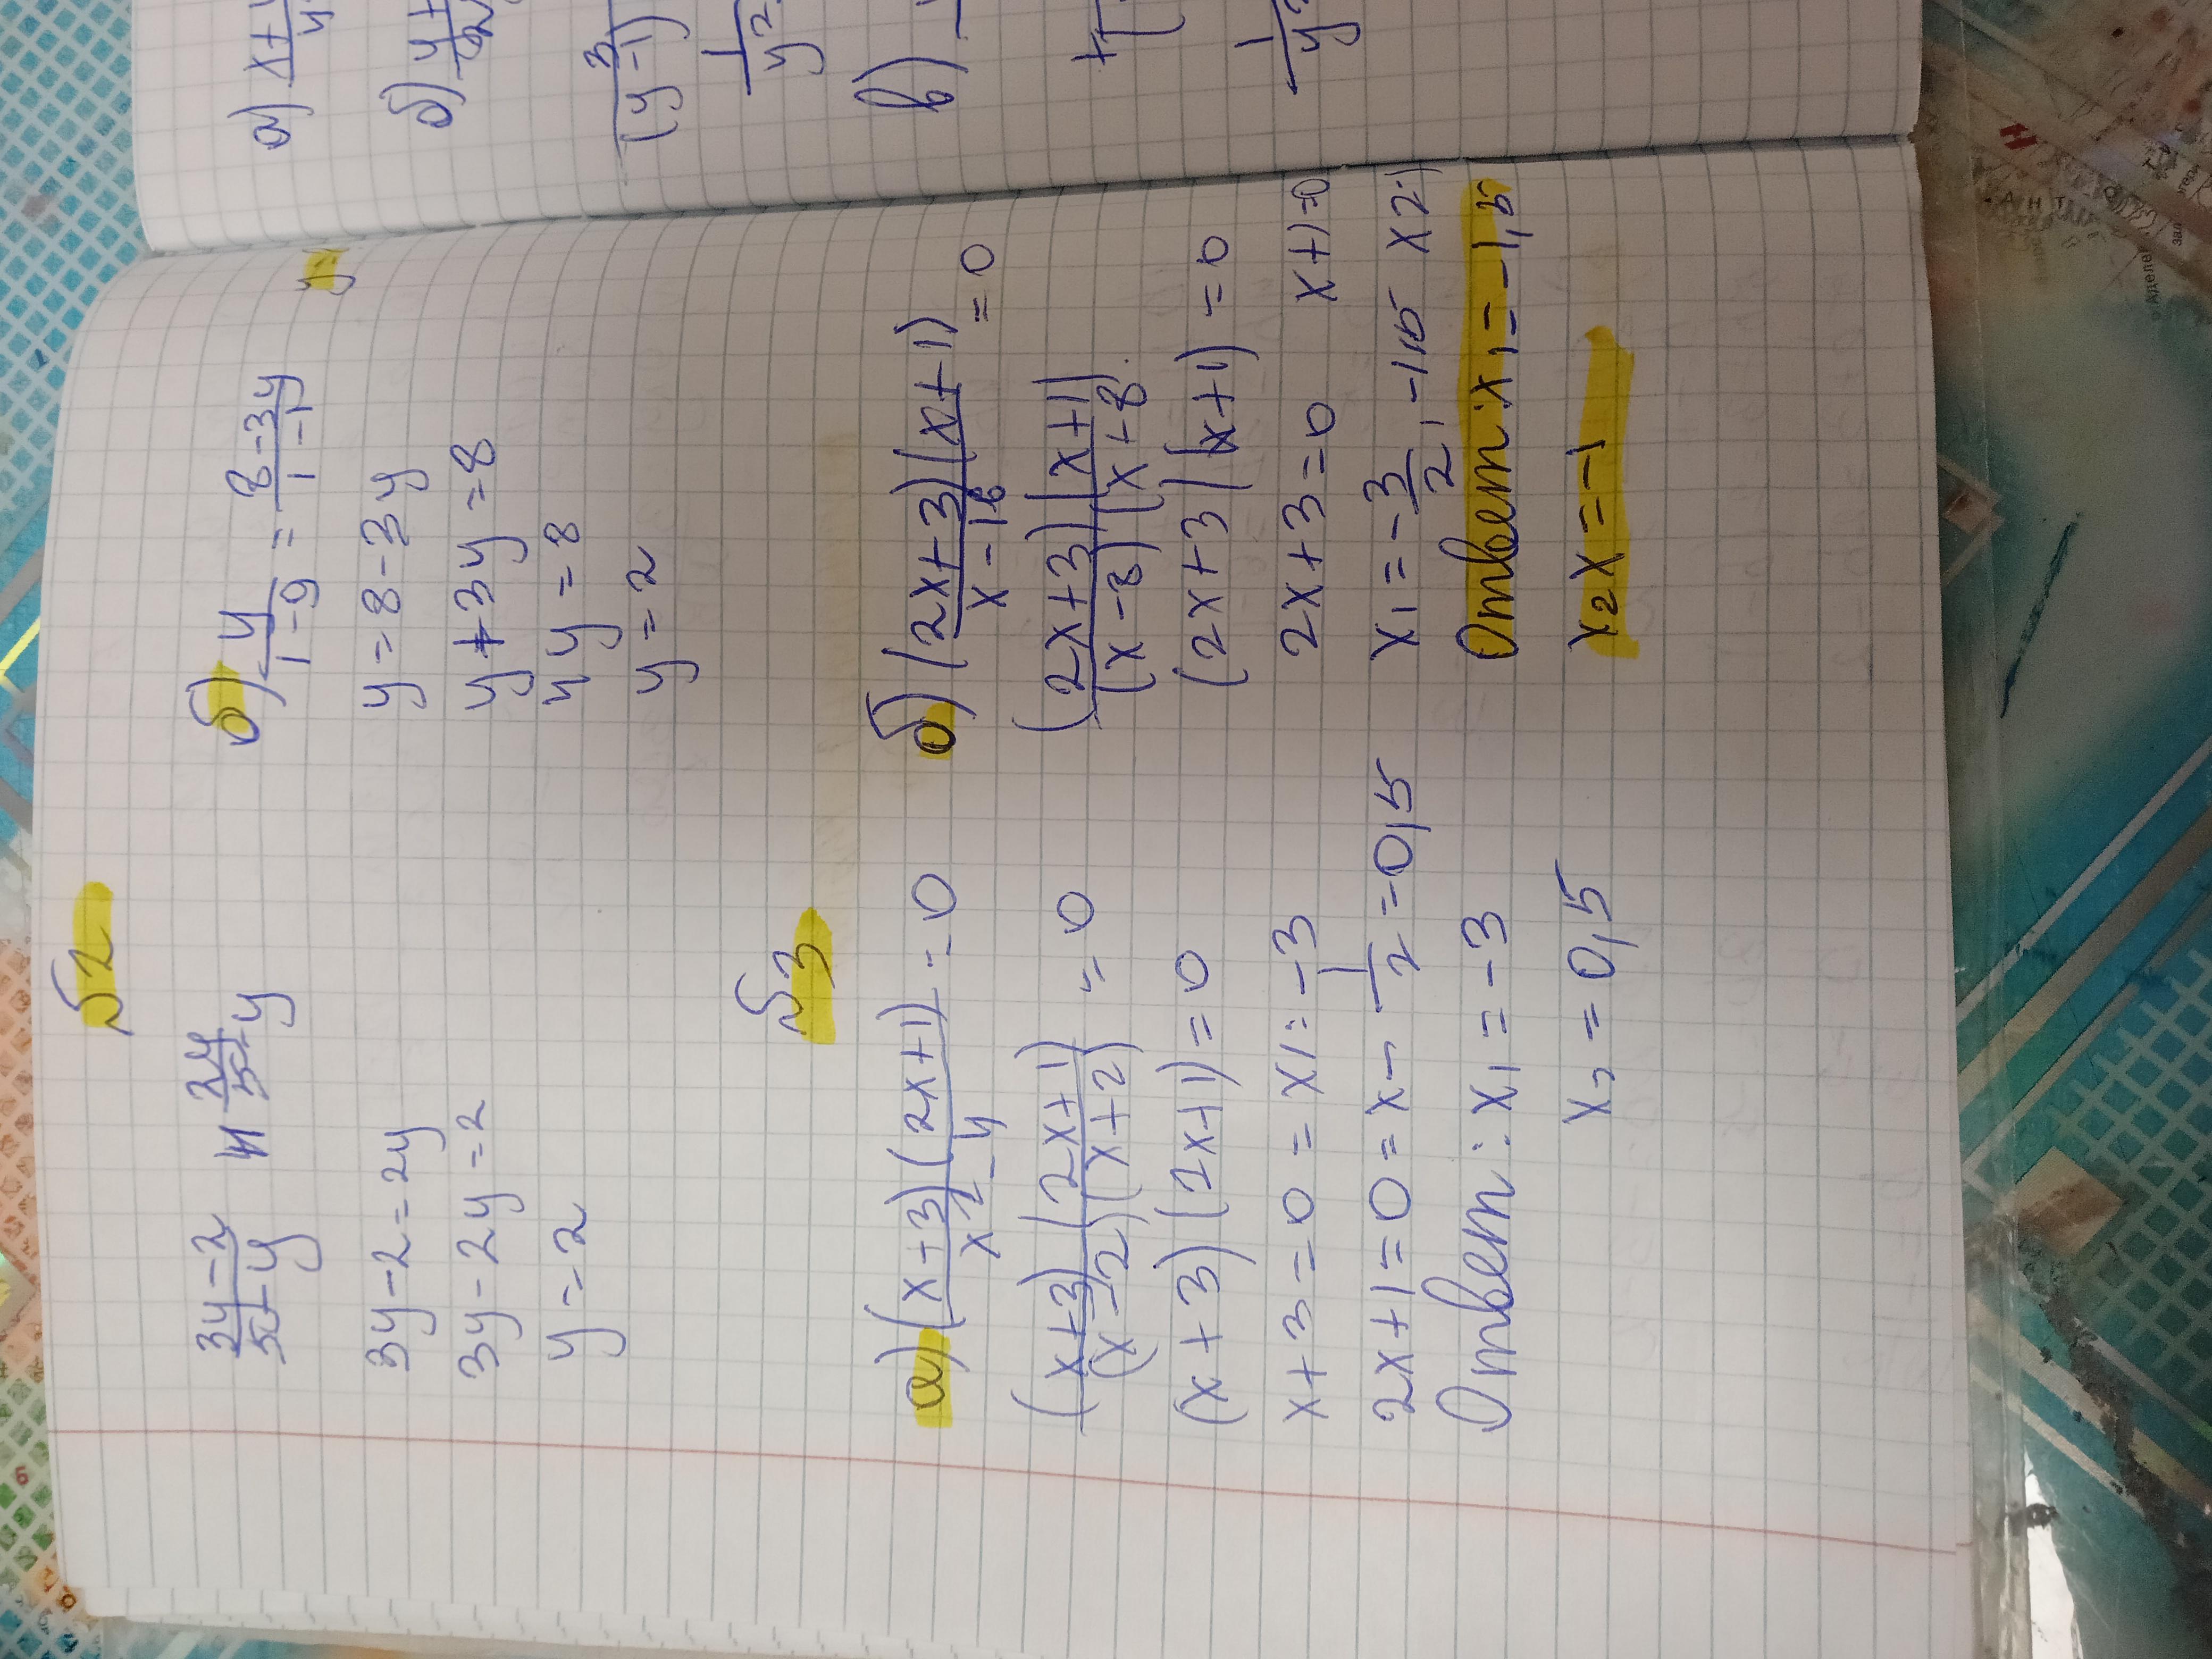 №2
(3y-2)/(5+y) и 2y/(5-y)
3y-2=2y
3y-2y=2
y=2
б) y/(1-9) = (8-3y)/(1-1)
y=8-3y
y+3y=8
4y=8
y=2
№3
а) (x+3)(2x+1)/(x²-4) = 0
(x+3)(2x+1)/(x-2)(x+2) = 0
(x+3)(2x+1)=0
x+3=0=x1=-3
2x+1=0=x-1/2=0,5
Ответ: x1=-3
x2=0,5
б) (2x+3)(x+1)/(x-16) =0
(2x+3)(x+1)/(x-8)(x+8)
(2x+3)(x+1)=0
2x+3=0 x+1=0
x1=-3/2, -1,5 x2-1
Ответ: x1=-1,5
x2x=-1
а) x+
б) y+
(y-1)
1
y2
в)
+
1